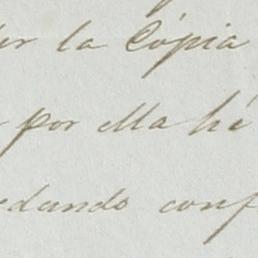 er la Cópia
por ella hé
edando conf